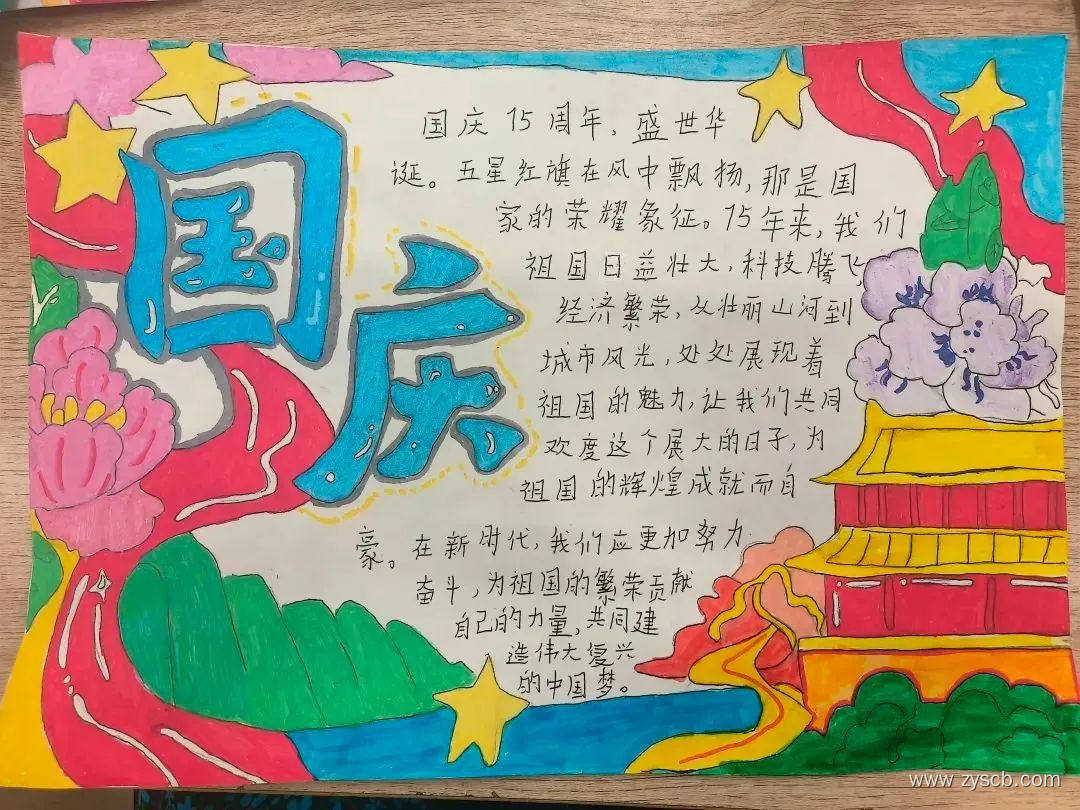 国庆
国庆 75 周年，盛世华
诞。五星红旗在风中飘扬，那是国
家的荣耀象征。75年来，我们
祖国日益壮大，科技腾飞，
经济繁荣，从壮丽山河到
城市风光，处处展现着
祖国的魅力，让我们共同
欢度这个展大的日子，为
祖国的辉煌成就而自
豪。在新时代，我们应更加努力
奋斗，为祖国的繁荣贡献
自己的力量，共同建
造伟大复兴
的中国梦。
www.zyscb.com